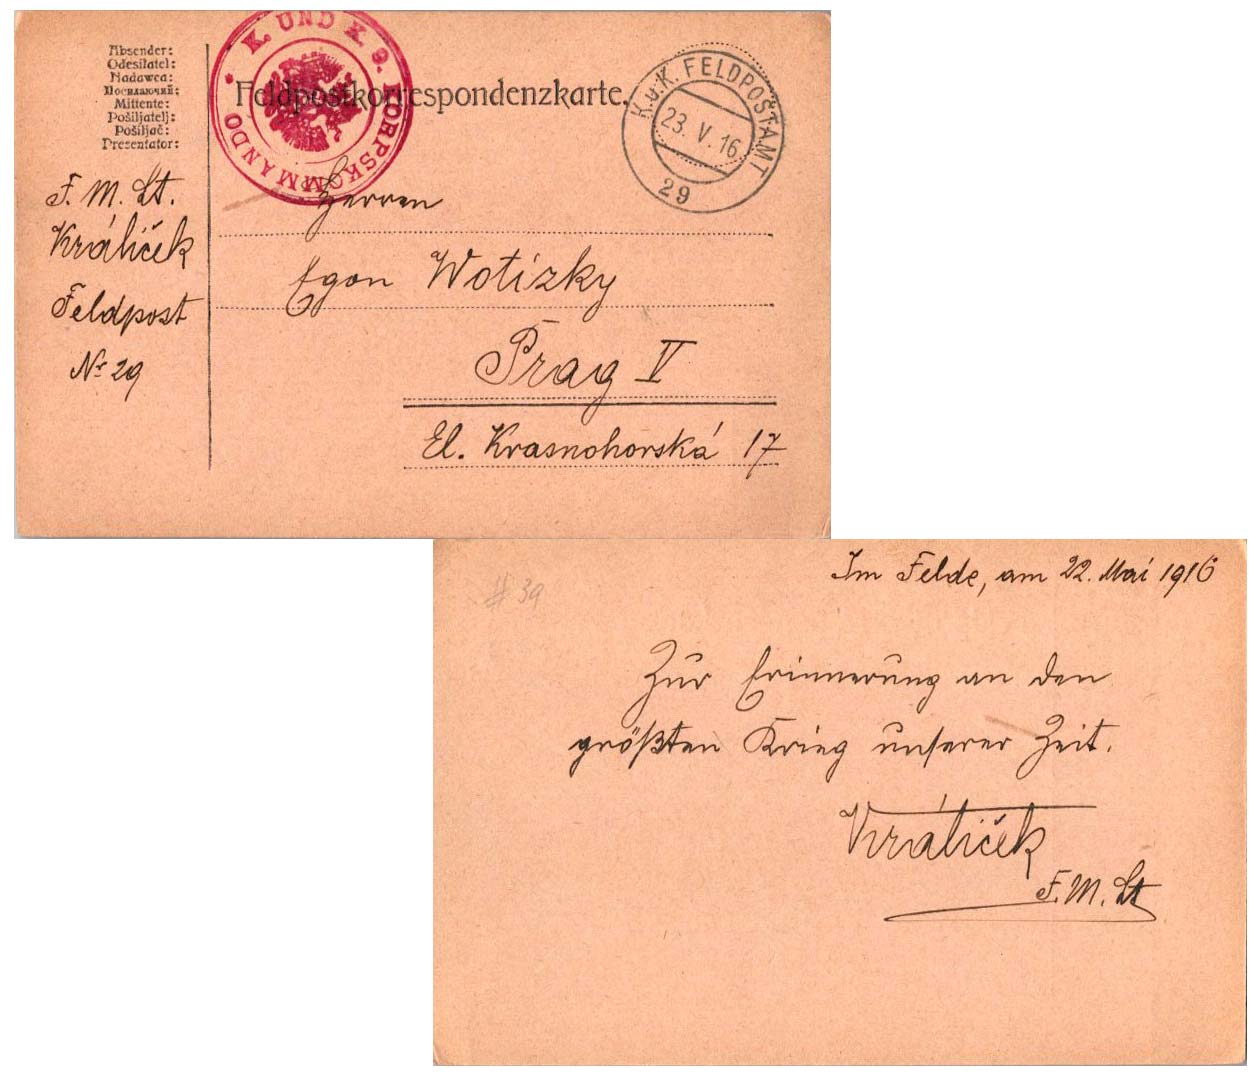 Absender:
Odesílatel:
Nadawca:
Посилаючий:
Mittente:
Pošiljatelj:
Pošiljač:
Presentator:
K. UND K. 9. KORPSKOMMANDO *
Feldpostkorrespondenzkarte.
K.u.K. FELDPOSTAMT
23. V. 16
29
F. M. Lt.
Králíček
Feldpost
Nr 29
Herren
Egon Wotizky
Prag V
El. Krasnohorská 17
# 39
Im Felde, am 22. Mai 1916
Zur Erinnerung an den
größten Krieg unserer Zeit.
Králíček
F. M. Lt